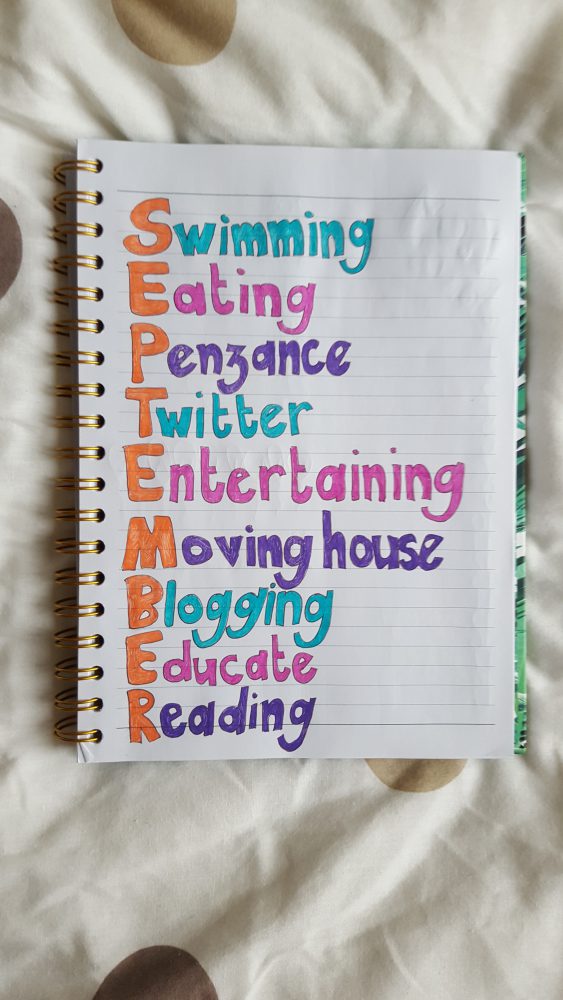 Swimming
Eating
Penzance
Twitter
Entertaining
Moving house
Blogging
Educate
Reading